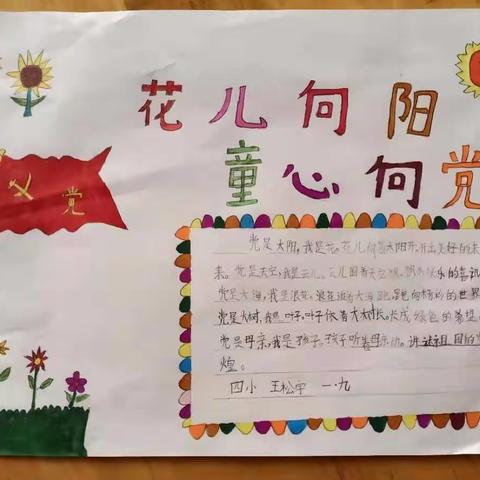 花儿向阳
童心向党
党
党是太阳,我是花。花儿向着太阳开,开出美好的未
来。党是天空,我是云儿。云儿围着天空飘,飘来快乐的喜讯
党是大海,我是浪花。浪花追着大海跑,跑向精彩的世界
党是大树,我是叶子,叶子依着大树长。长成绿色的希望
党是母亲,我是孩子。孩子听着母亲讲述祖国的
煌。
四小 王松宇 一·九